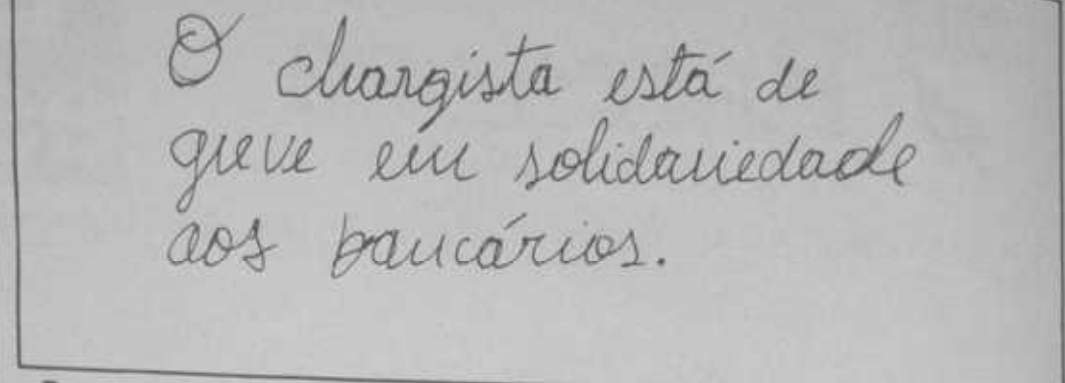 O chargista está de
greve em solidariedade
aos bancários.